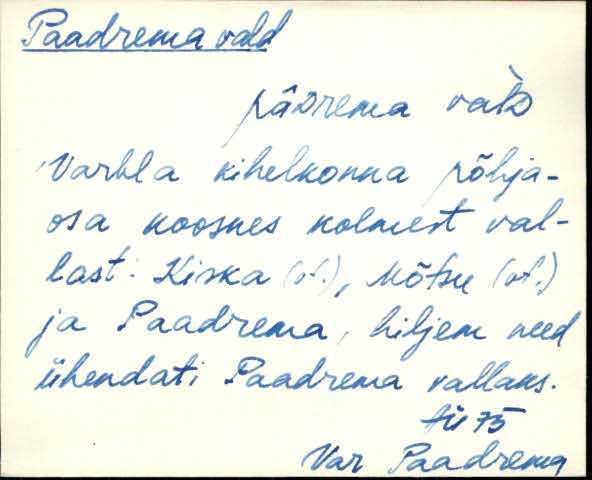 Paadrema vald
pādrema vaĺD
Varbla kihelkonna põhja-
osa koosnes kolmest val-
last: Kiska (vt.), Mõtsu (vt.)
ja Paadrema, hiljem need
ühendati Paadrema vallaks.
TÜ 75
Var Paadrema